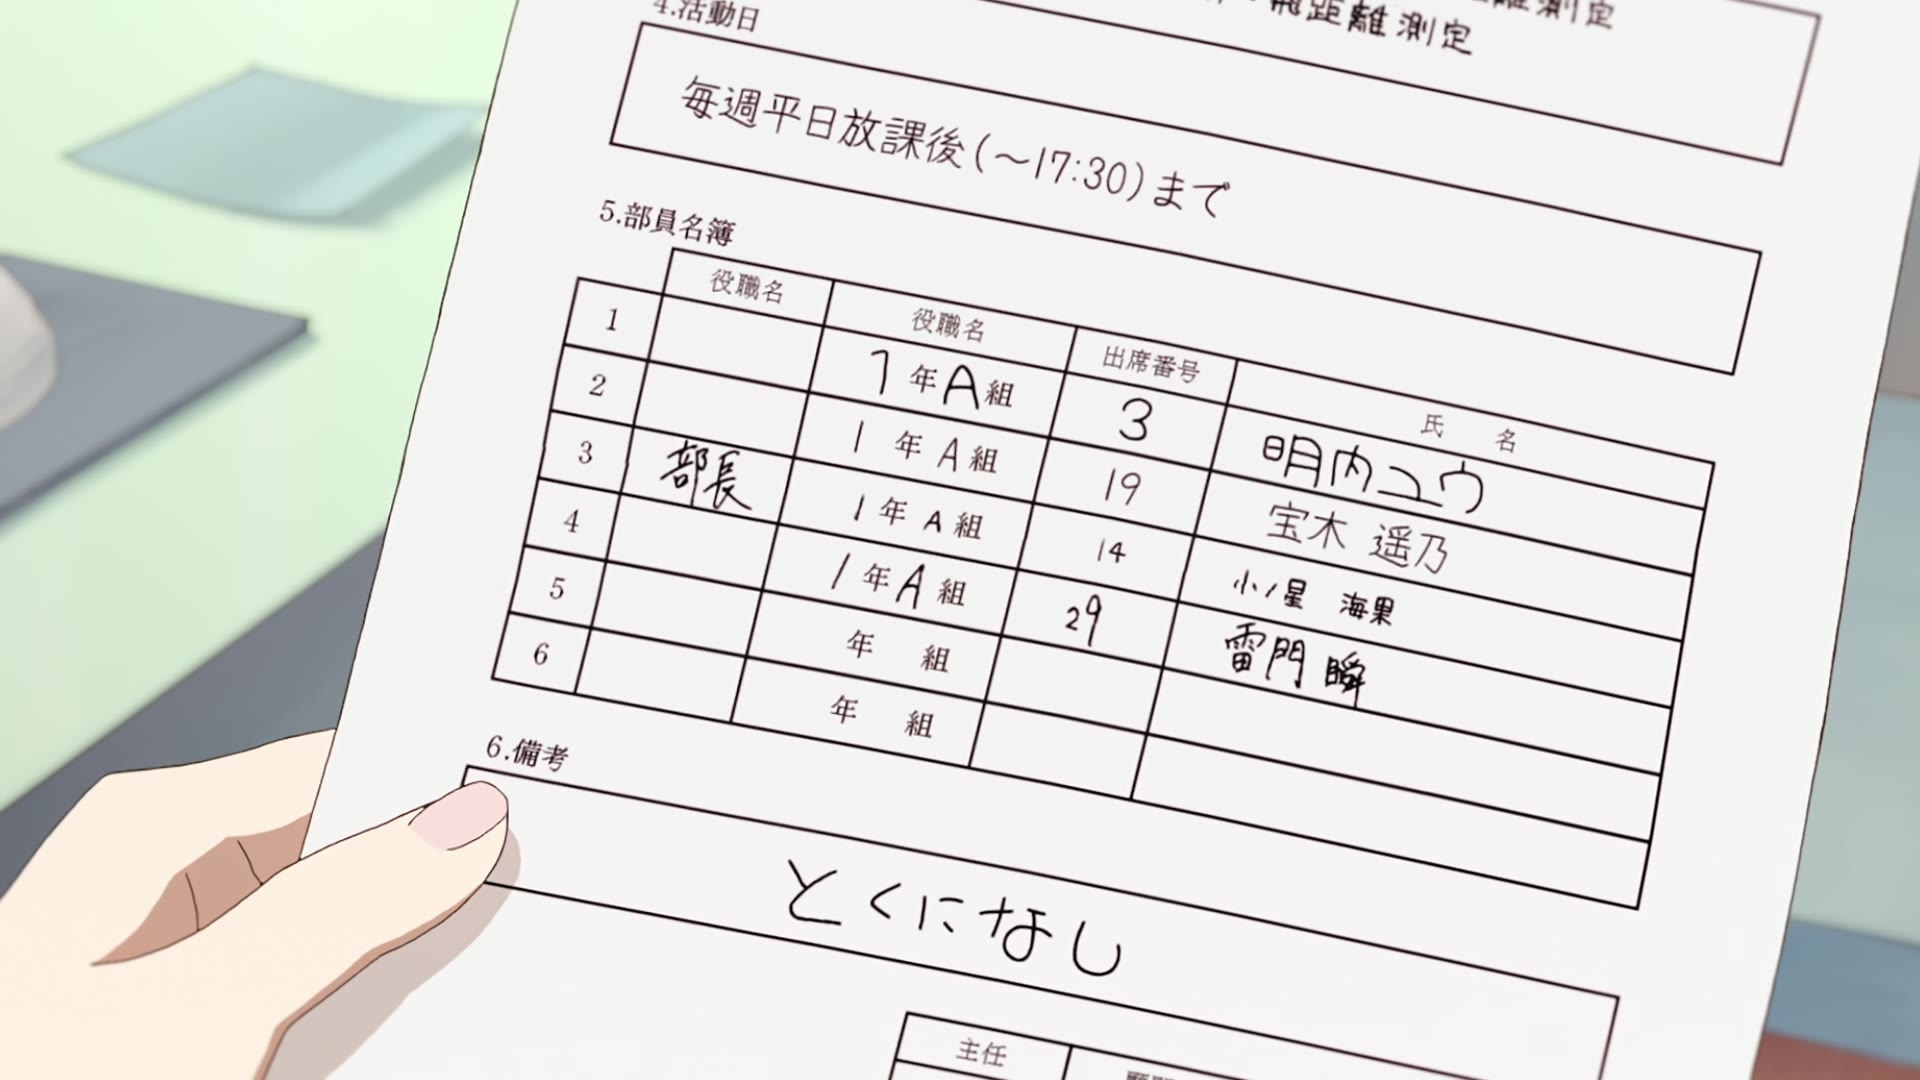 距離測定
飛距離測定
4.活動日
毎週平日放課後(～17:30)まで
5.部員名簿
役職名 役職名 出席番号 氏 名
1 1年A組 3 明内ユウ
2 1年A組 19 宝木 遥乃
3 部長 1年A組 14 小ノ星 海果
4 1年A組 29 雷門 瞬
5 年 組
6 年 組
6.備考
とくになし
主任